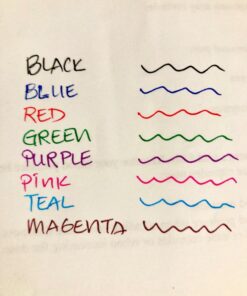 BLACK
BLUE
RED
GREEN
PURPLE
PINK
TEAL
MAGENTA